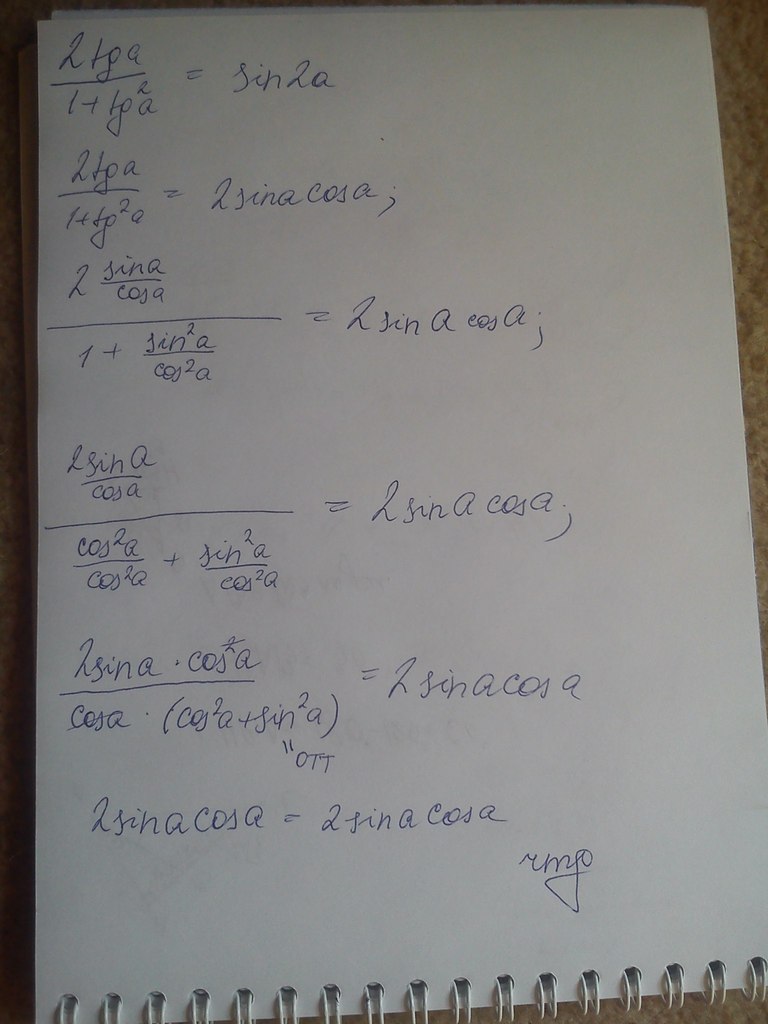 2tga / 1+tg²a = sin2a
2tga / 1+tg²a = 2sina cosa;
2 sina/cosa / 1 + sin²a/cos²a = 2sina cosa;
2sina/cosa / cos²a/cos²a + sin²a/cos²a = 2sina cosa;
2sina · cos²a / cosa · (cos²a+sin²a) = 2sina cosa
"ОТТ
2sina cosa = 2sina cosa
чтд